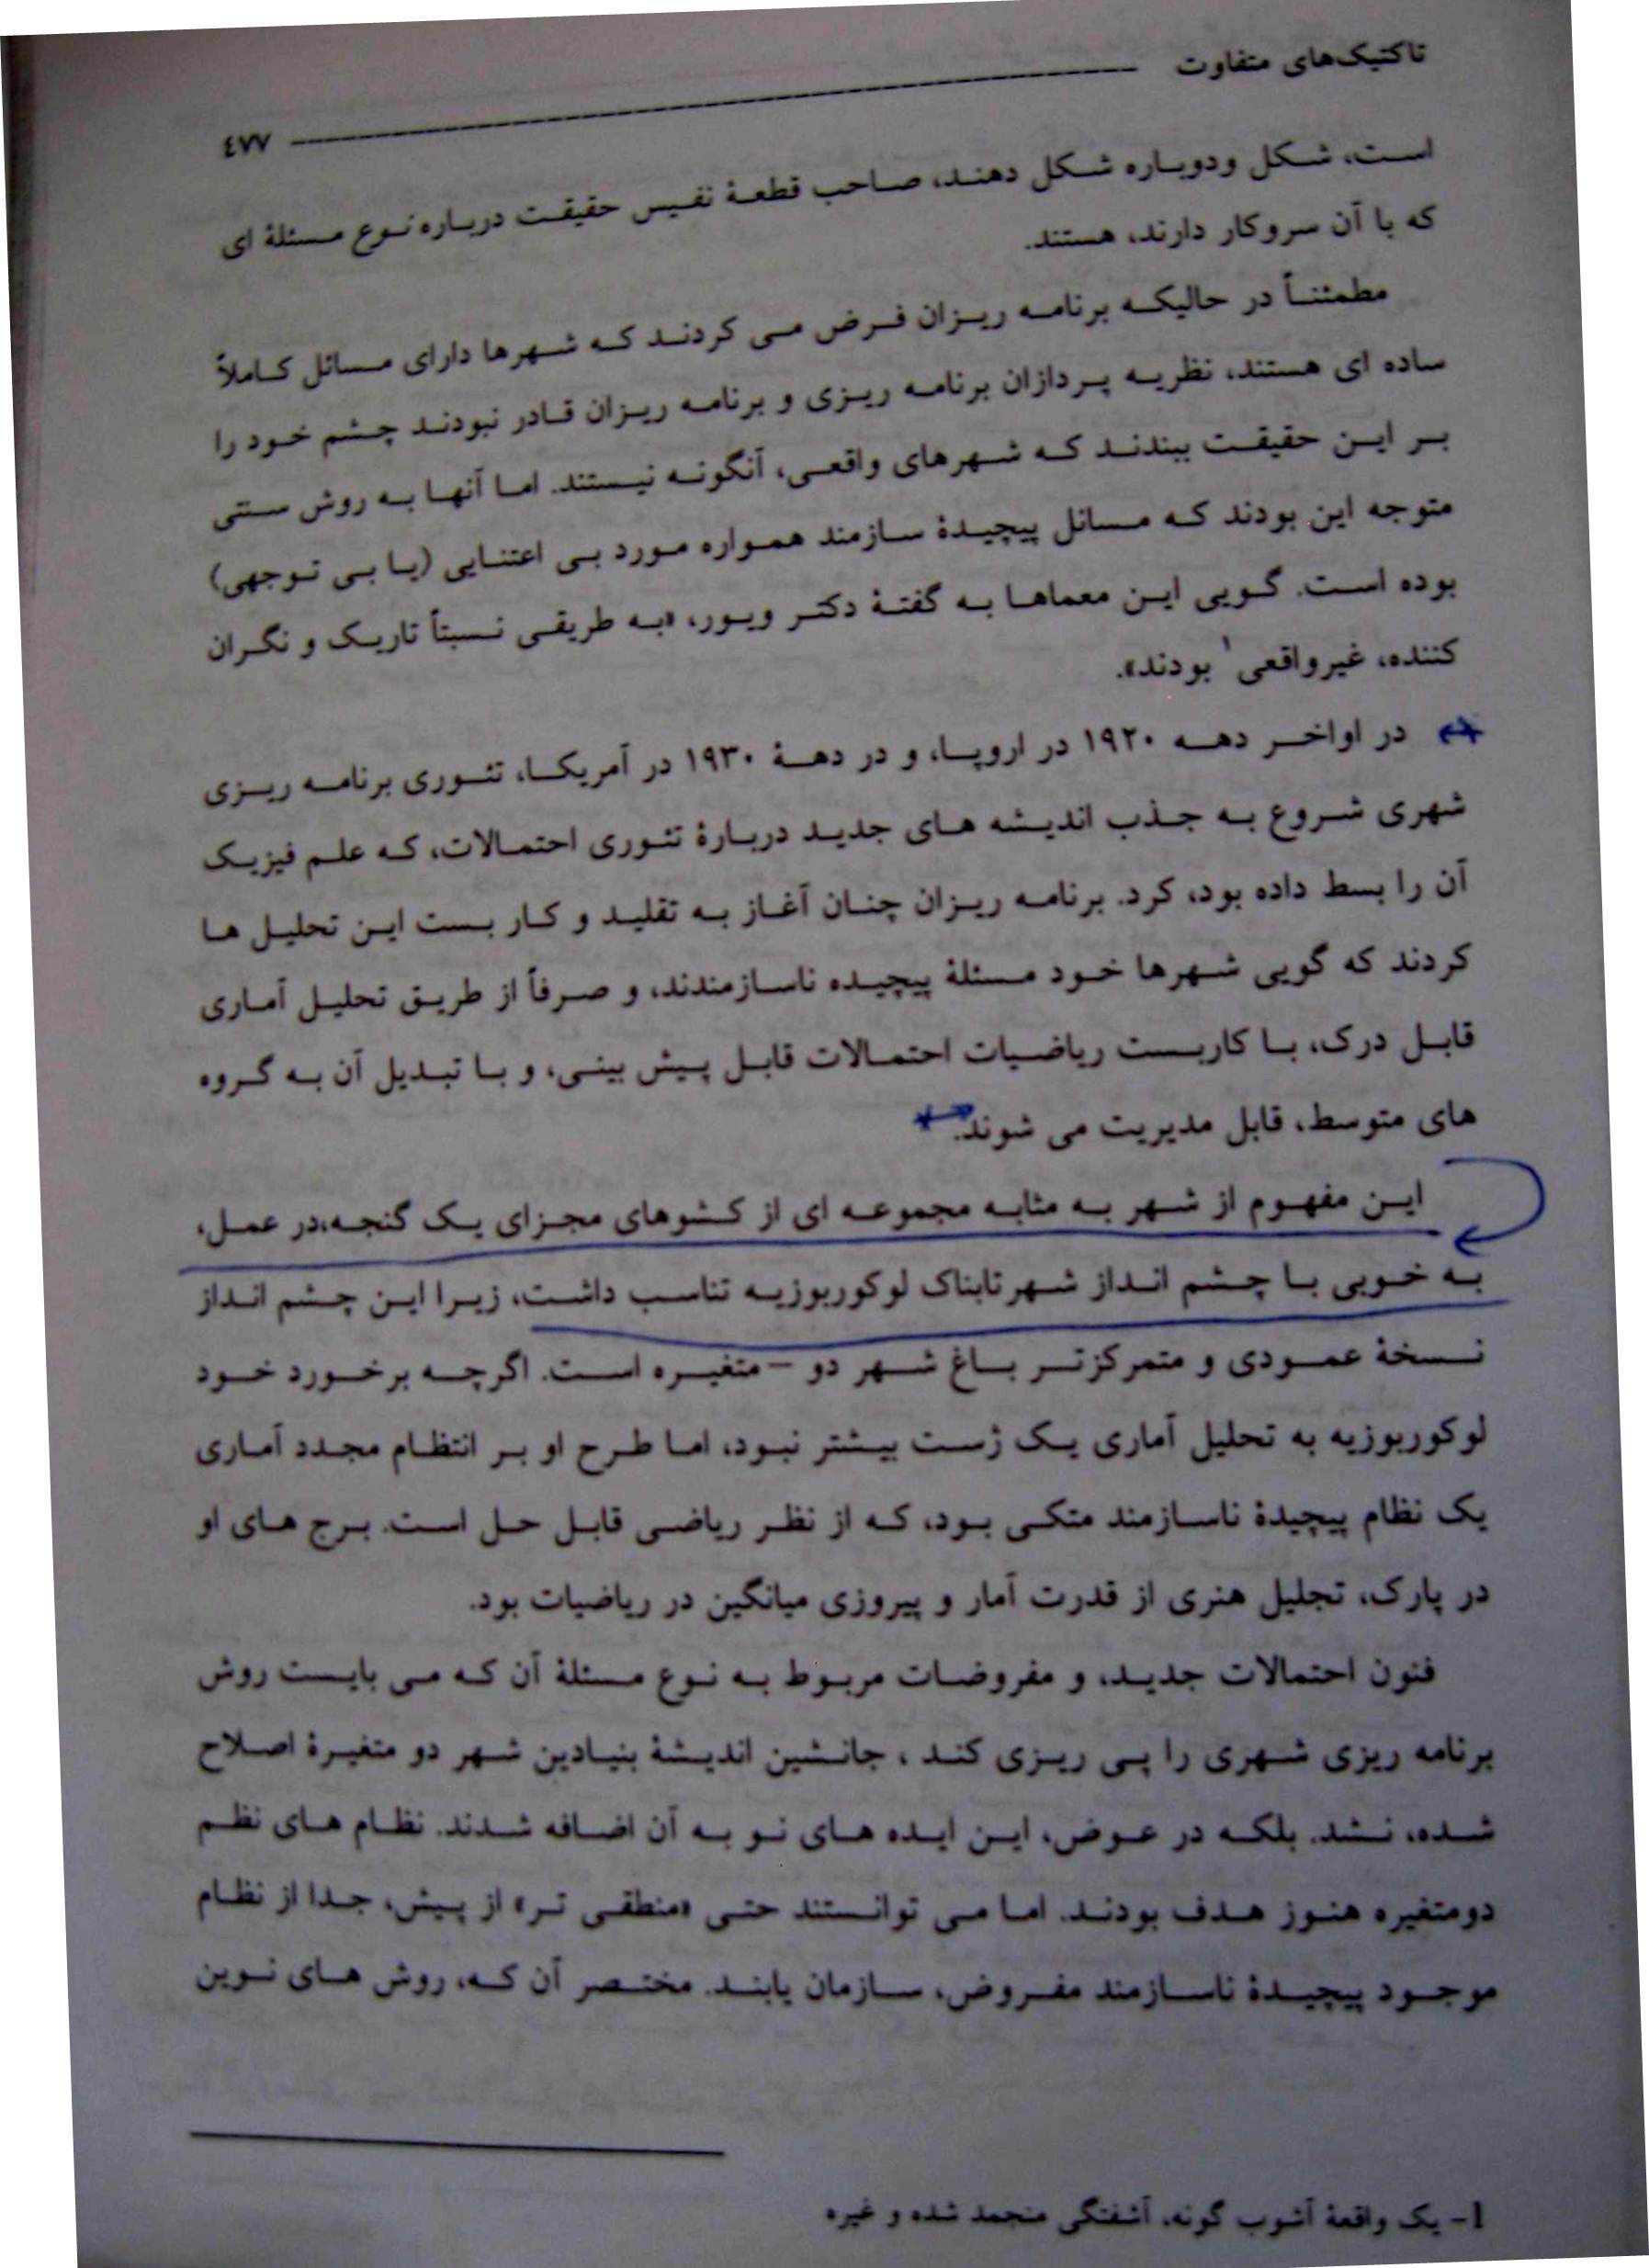 تاکتیک‌های متفاوت
٤٧٧
است، شکل ودوباره شکل دهند، صاحب قطعهٔ نفیس حقیقت درباره نوع مسئلهٔ ای
که با آن سروکار دارند، هستند.
مطمئناً در حالیکه برنامه ریزان فرض می کردند که شهرها دارای مسائل کاملاً
ساده ای هستند، نظریه پردازان برنامه ریزی و برنامه ریزان قادر نبودند چشم خود را
بر این حقیقت ببندند که شهرهای واقعی، آنگونه نیستند. اما آنها به روش سنتی
متوجه این بودند که مسائل پیچیدهٔ سازمند همواره مورد بی اعتنایی (یا بی توجهی)
بوده است. گویی این معماها به گفتهٔ دکتر ویور، «به طریقی نسبتاً تاریک و نگران
کننده، غیرواقعی۱ بودند».
در اواخر دهه ۱۹۲۰ در اروپا، و در دههٔ ۱۹۳۰ در آمریکا، تئوری برنامه ریزی
شهری شروع به جذب اندیشه های جدید دربارهٔ تئوری احتمالات، که علم فیزیک
آن را بسط داده بود، کرد. برنامه ریزان چنان آغاز به تقلید و کار بست این تحلیل ها
کردند که گویی شهرها خود مسئلهٔ پیچیده ناسازمندند، و صرفاً از طریق تحلیل آماری
قابل درک، با کاربست ریاضیات احتمالات قابل پیش بینی، و با تبدیل آن به گروه
های متوسط، قابل مدیریت می شوند.
این مفهوم از شهر به مثابه مجموعه ای از کشوهای مجزای یک گنجه،در عمل،
به خوبی با چشم انداز شهرتابناک لوکوربوزیه تناسب داشت، زیرا این چشم انداز
نسخهٔ عمودی و متمرکزتر باغ شهر دو – متغیره است. اگرچه برخورد خود
لوکوربوزیه به تحلیل آماری یک ژست بیشتر نبود، اما طرح او بر انتظام مجدد آماری
یک نظام پیچیدهٔ ناسازمند متکی بود، که از نظر ریاضی قابل حل است. برج های او
در پارک، تجلیل هنری از قدرت آمار و پیروزی میانگین در ریاضیات بود.
فنون احتمالات جدید، و مفروضات مربوط به نوع مسئلهٔ آن که می بایست روش
برنامه ریزی شهری را پی ریزی کند ، جانشین اندیشهٔ بنیادین شهر دو متغیرهٔ اصلاح
شده، نشد. بلکه در عوض، این ایده های نو به آن اضافه شدند. نظام های نظم
دومتغیره هنوز هدف بودند. اما می توانستند حتی «منطقی تر» از پیش، جدا از نظام
موجود پیچیدهٔ ناسازمند مفروض، سازمان یابند. مختصر آن که، روش های نوین
1- یک واقعهٔ آشوب گونه، آشفتگی منجمد شده و غیره